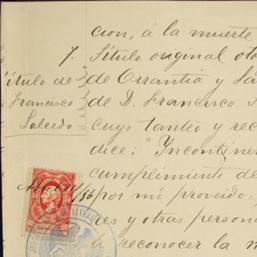 cion, á la muerte
7. Título original oto
de Orrantia y Sa
de D. Francisco
cuyo tanteo y rec
dice: "Incontinen
cumplimiento de
por mí proveido,
res y otras person
á reconocer la m
Título de
Francisco
Salcedo